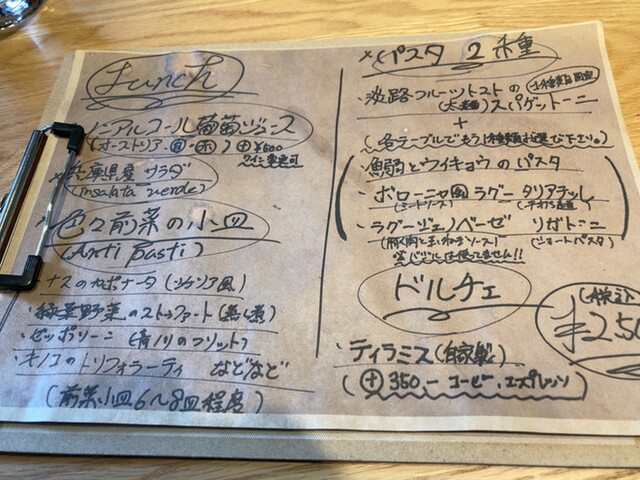 Lunch
ノンアルコール葡萄ジュース
(オーストリア・白・赤) ⊕¥500
ワイン変更可
兵庫県産 サラダ
(Insalata verde)
色々前菜の小皿
(Anti Pasti)
ナスのカポナータ(シチリア風)
・緑葉野菜のストゥファート(蒸し煮)
・ゼッポリーニ(青ノリのフリット)
・キノコのトリフォラーティ などなど
(前菜小皿6〜8皿程度)
パスタ 2種
・淡路フルーツトマトの(太麺)スパゲットーニ
+
(各テーブルでもう1種類お選び下さい。)
・魚鰯とウイキョウのパスタ
・ボローニャ風ラグー タリアテッレ
(ミートソース) (平打ち麺)
・ラグージェノベーゼ リガトーニ
(豚肉と玉ねぎソース) (ショートパスタ)
※バジルは使ってません!!
ドルチェ
・ティラミス(自家製)
(⊕350,- コーヒー、エスプレッソ)
(税込)
¥250